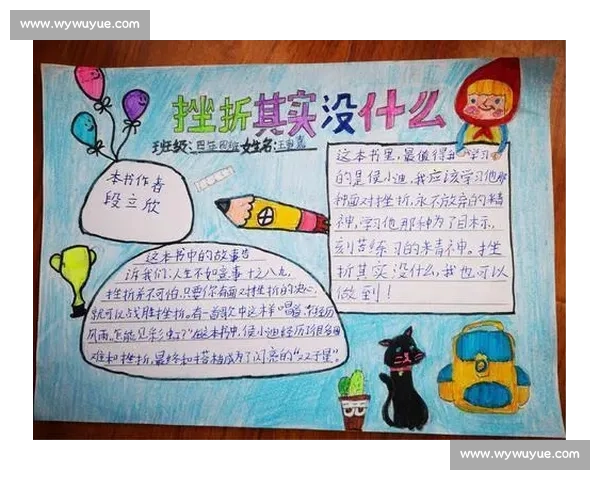 www.wywuyue.com
挫折其实没什么
班级: 四年四班 姓名:
本书作者
段立欣
这本书里,最值得我学习
的是侯小迪,我应该学习他那
种面对挫折,永不放弃的精
神,学习他那种为了目标,
刻苦练习的精神。挫
折其实没什么,我也可以
做到!
这本书中的故事告
诉我们:人生不如意事十之八九,
挫折并不可怕,只要你有面对挫折的决心,
就可以战胜挫折。有一首歌中这样唱着,不经历
风雨,怎能见彩虹?"在这本书中,侯小迪经历
难和挫折,最终和搭档成为了闪亮的"双子星"。
www.wywuyue.com